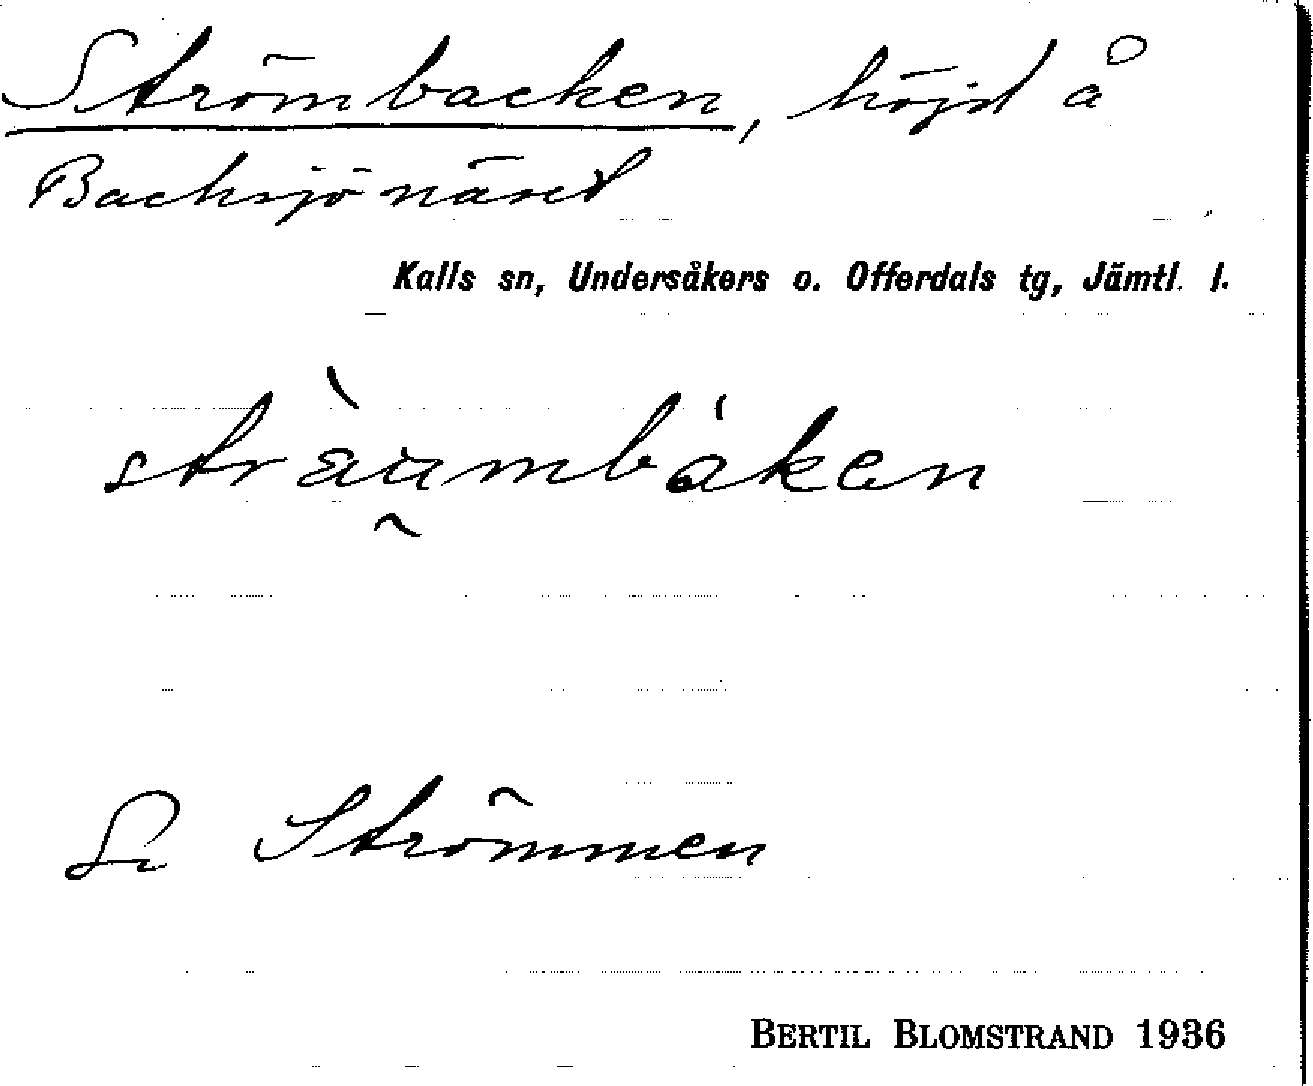 Strömbacken, höjd å
Backsjönäset
Kalls sn, Undersåkers o. Offerdals tg, Jämtl. l.
stràu̯mbáken
Se Strömmen
BERTIL BLOMSTRAND 1936